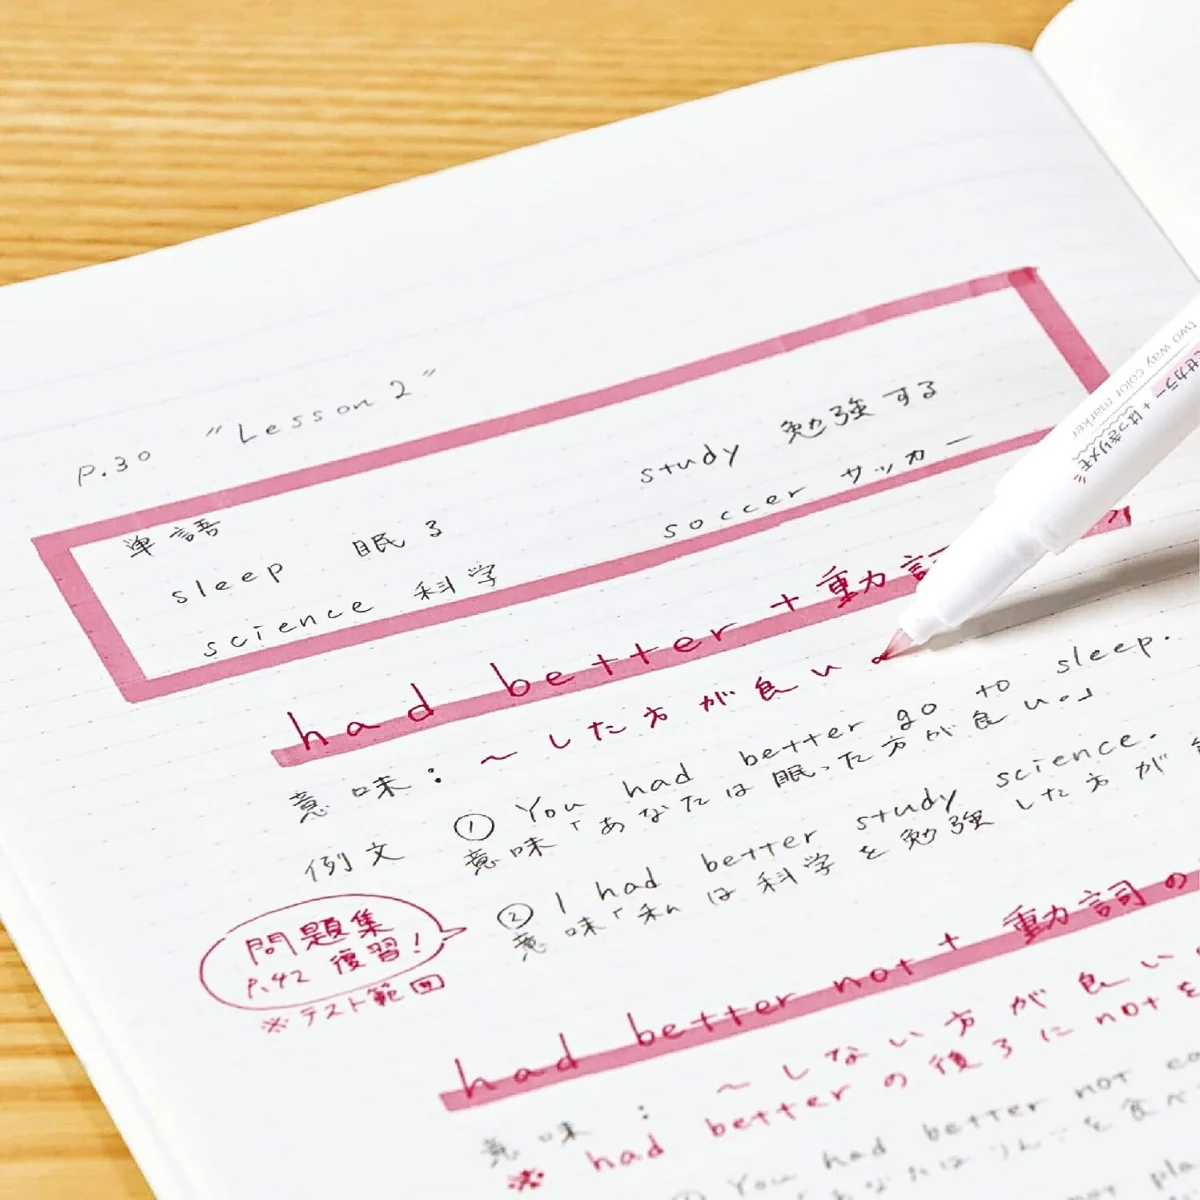 p.30 "Lesson 2"
単語
sleep 眠る
study 勉強する
science 科学
soccer サッカー
had better + 動詞
意味：～した方が良い
例文 ① You had better go to sleep.
意味「あなたは眠った方が良い。」
② I had better study science.
意味「私は科学を勉強した方が
問題集
P.42 復習！
※テスト範囲
had better not + 動詞の
意味：～しない方が良い
※ had better の後ろに not を
You had better not
を食べ
two way color marker
せカラー + はっきりメモ